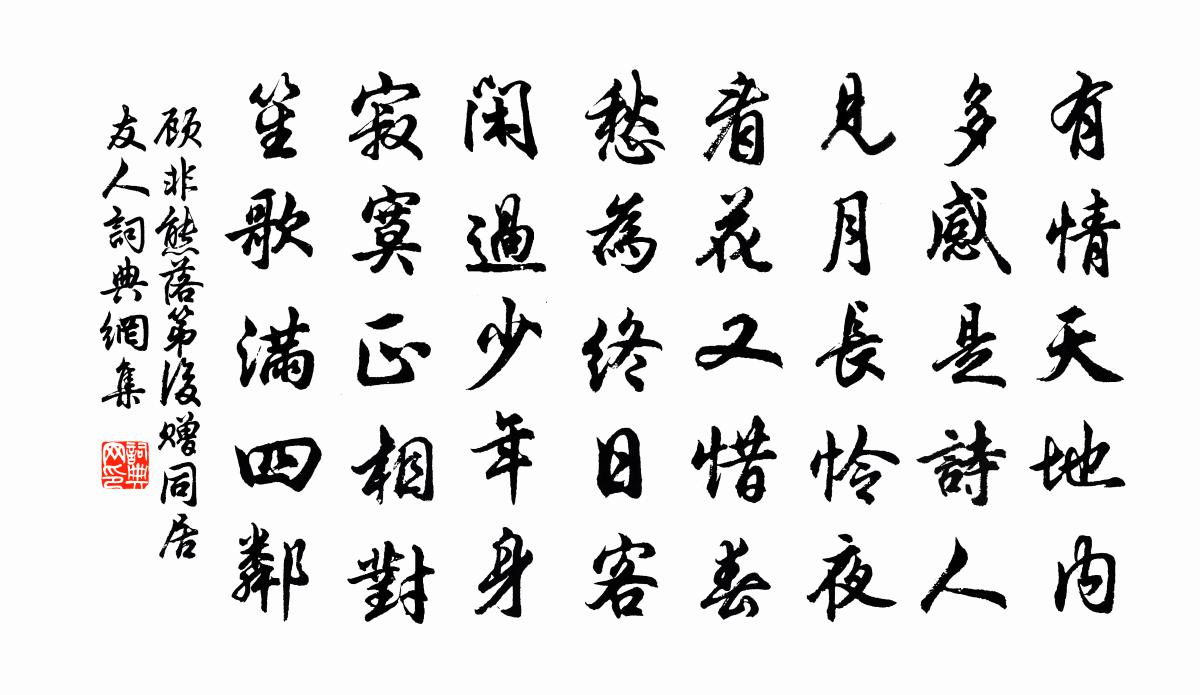 有情天地内
多感是詩人
見月長怜夜
看花又惜春
愁為終日客
閑過少年身
寂寞正相對
笙歌滿四鄰
顾非熊落第後赠同居
友人詞典網集
詞典
网印